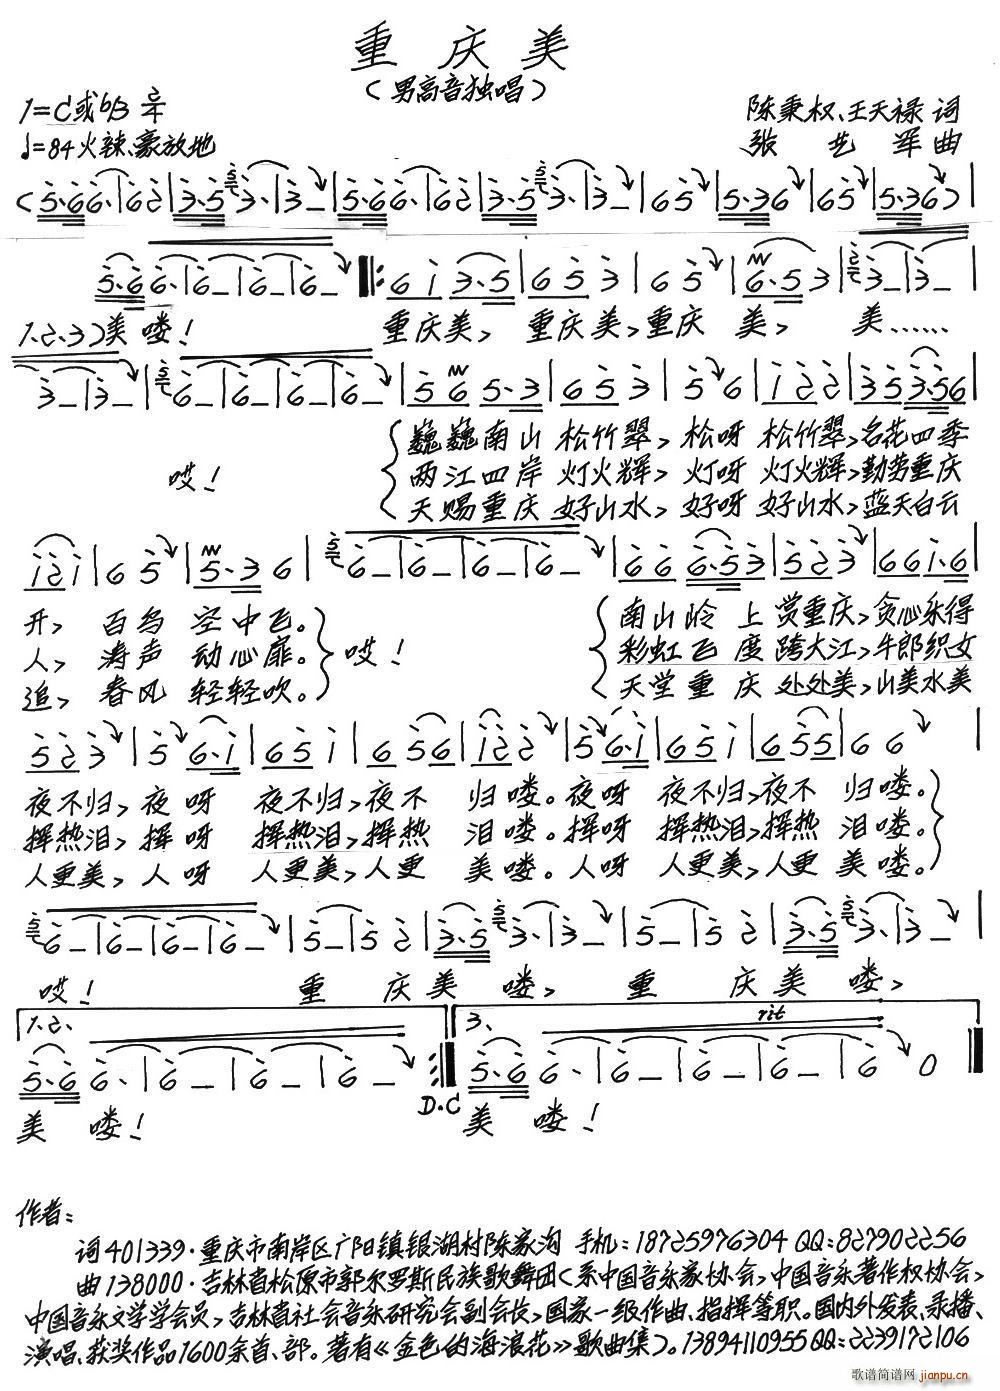 重庆美
(男高音独唱)
1=C或bB 2/4
陈秉权、王天禄 词
♩=84 火辣、豪放地
张艺军 曲
1.2.3.)美喽! 重庆美, 重庆美,重庆 美, 美……
巍巍南山 松竹翠, 松呀 松竹翠,名花四季
哎! 两江四岸 灯火辉, 灯呀 灯火辉,勤劳重庆
天赐重庆 好山水, 好呀 好山水,蓝天白云
开, 百鸟 空中飞。 南山岭 上 赏重庆,贪心乐得
人, 涛声 动心扉。 哎! 彩虹飞 度 跨大江,牛郎织女
追, 春风 轻轻吹。 天堂重 庆 处处美,山美水美
夜不归,夜呀 夜不归,夜不 归喽。夜呀 夜不归,夜不 归喽。
挥热泪,挥呀 挥热泪,挥热 泪喽。挥呀 挥热泪,挥热 泪喽。
人更美,人呀 人更美,人更 美喽。人呀 人更美,人更 美喽。
哎! 重 庆美 喽, 重 庆美 喽,
1.2. 3. rit
D.C
美 喽! 美 喽!
作者:
词401339·重庆市南岸区广阳镇银湖村陈家沟 手机:18725976304 QQ:827902256
曲138000·吉林省松原市郭尔罗斯民族歌舞团(系中国音乐家协会,中国音乐著作权协会,
中国音乐文学学会员,吉林省社会音乐研究会副会长,国家一级作曲、指挥等职。国内外发表、录播、
演唱、获奖作品1600余首、部。著有《金色的海浪花》歌曲集)。13894110955 QQ:2239172106
歌谱简谱网 jianpu.cn